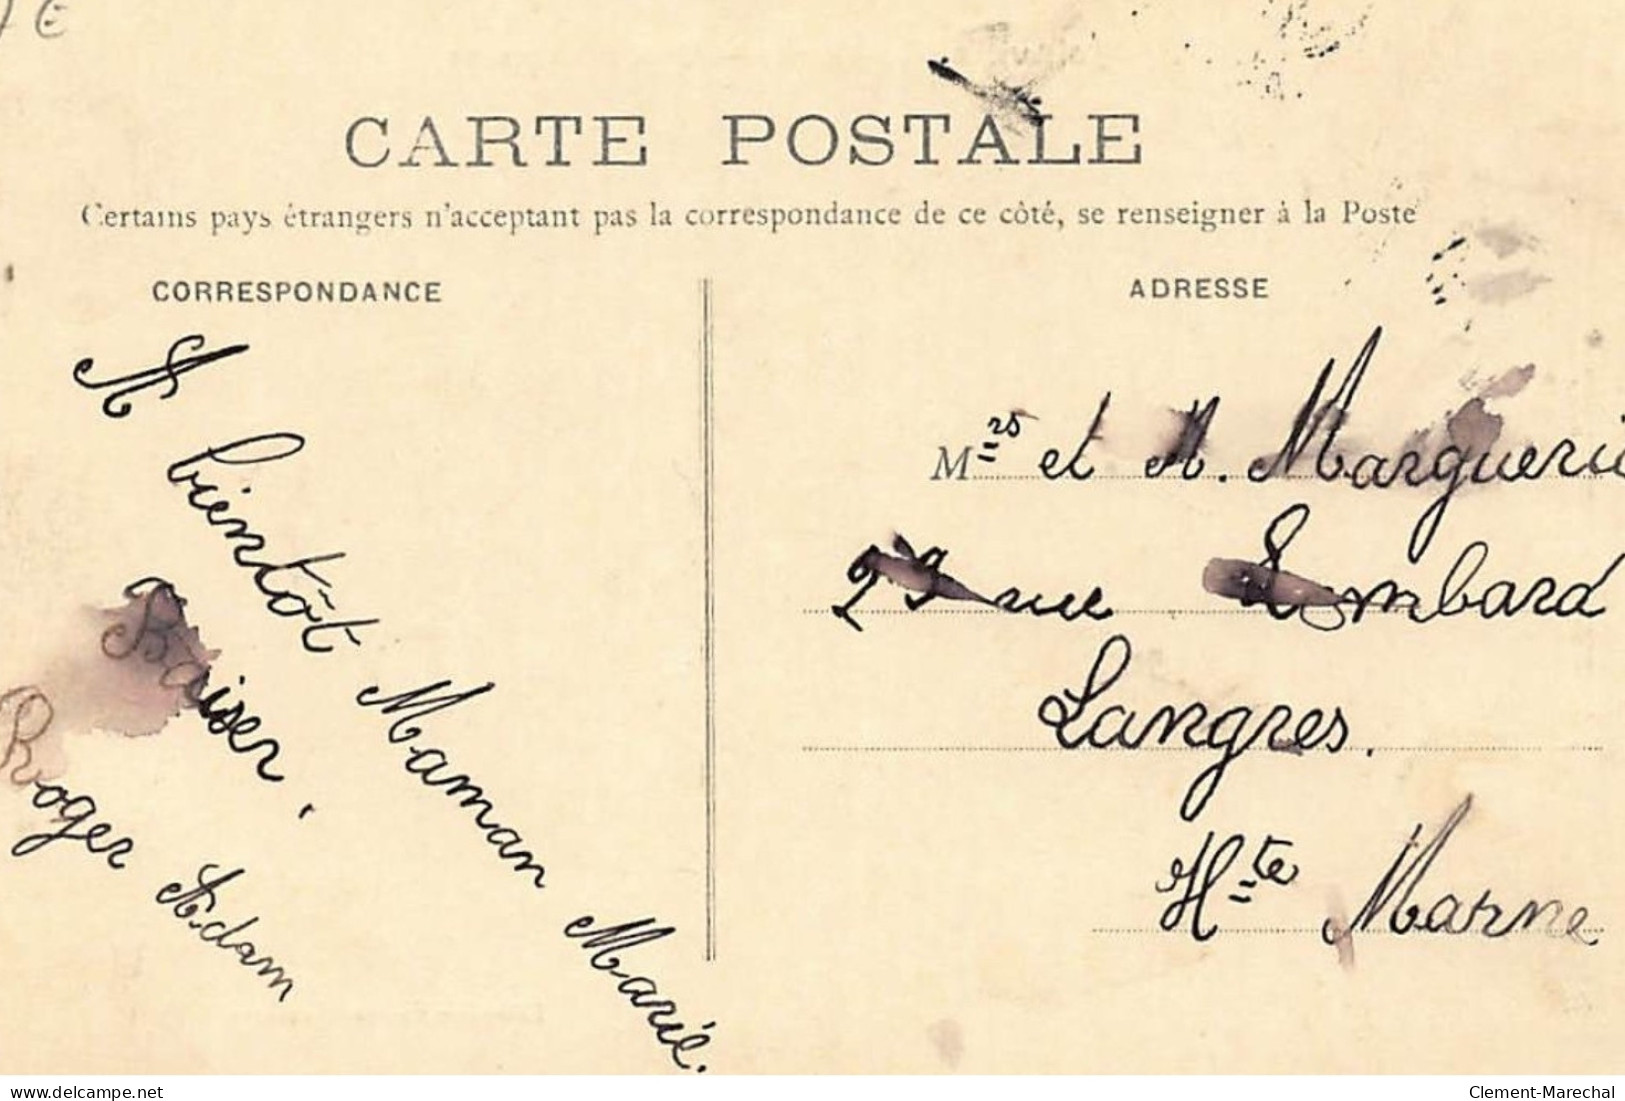 7 €
CARTE POSTALE
Certains pays étrangers n'acceptant pas la correspondance de ce côté, se renseigner à la Poste
CORRESPONDANCE
A bientôt Maman Marie.
Baiser.
Roger Adam
ADRESSE
Mrs et M. Margueri
29 rue Lombard
Langres.
Hte Marne
www.delcampe.net
Clement-Marechal